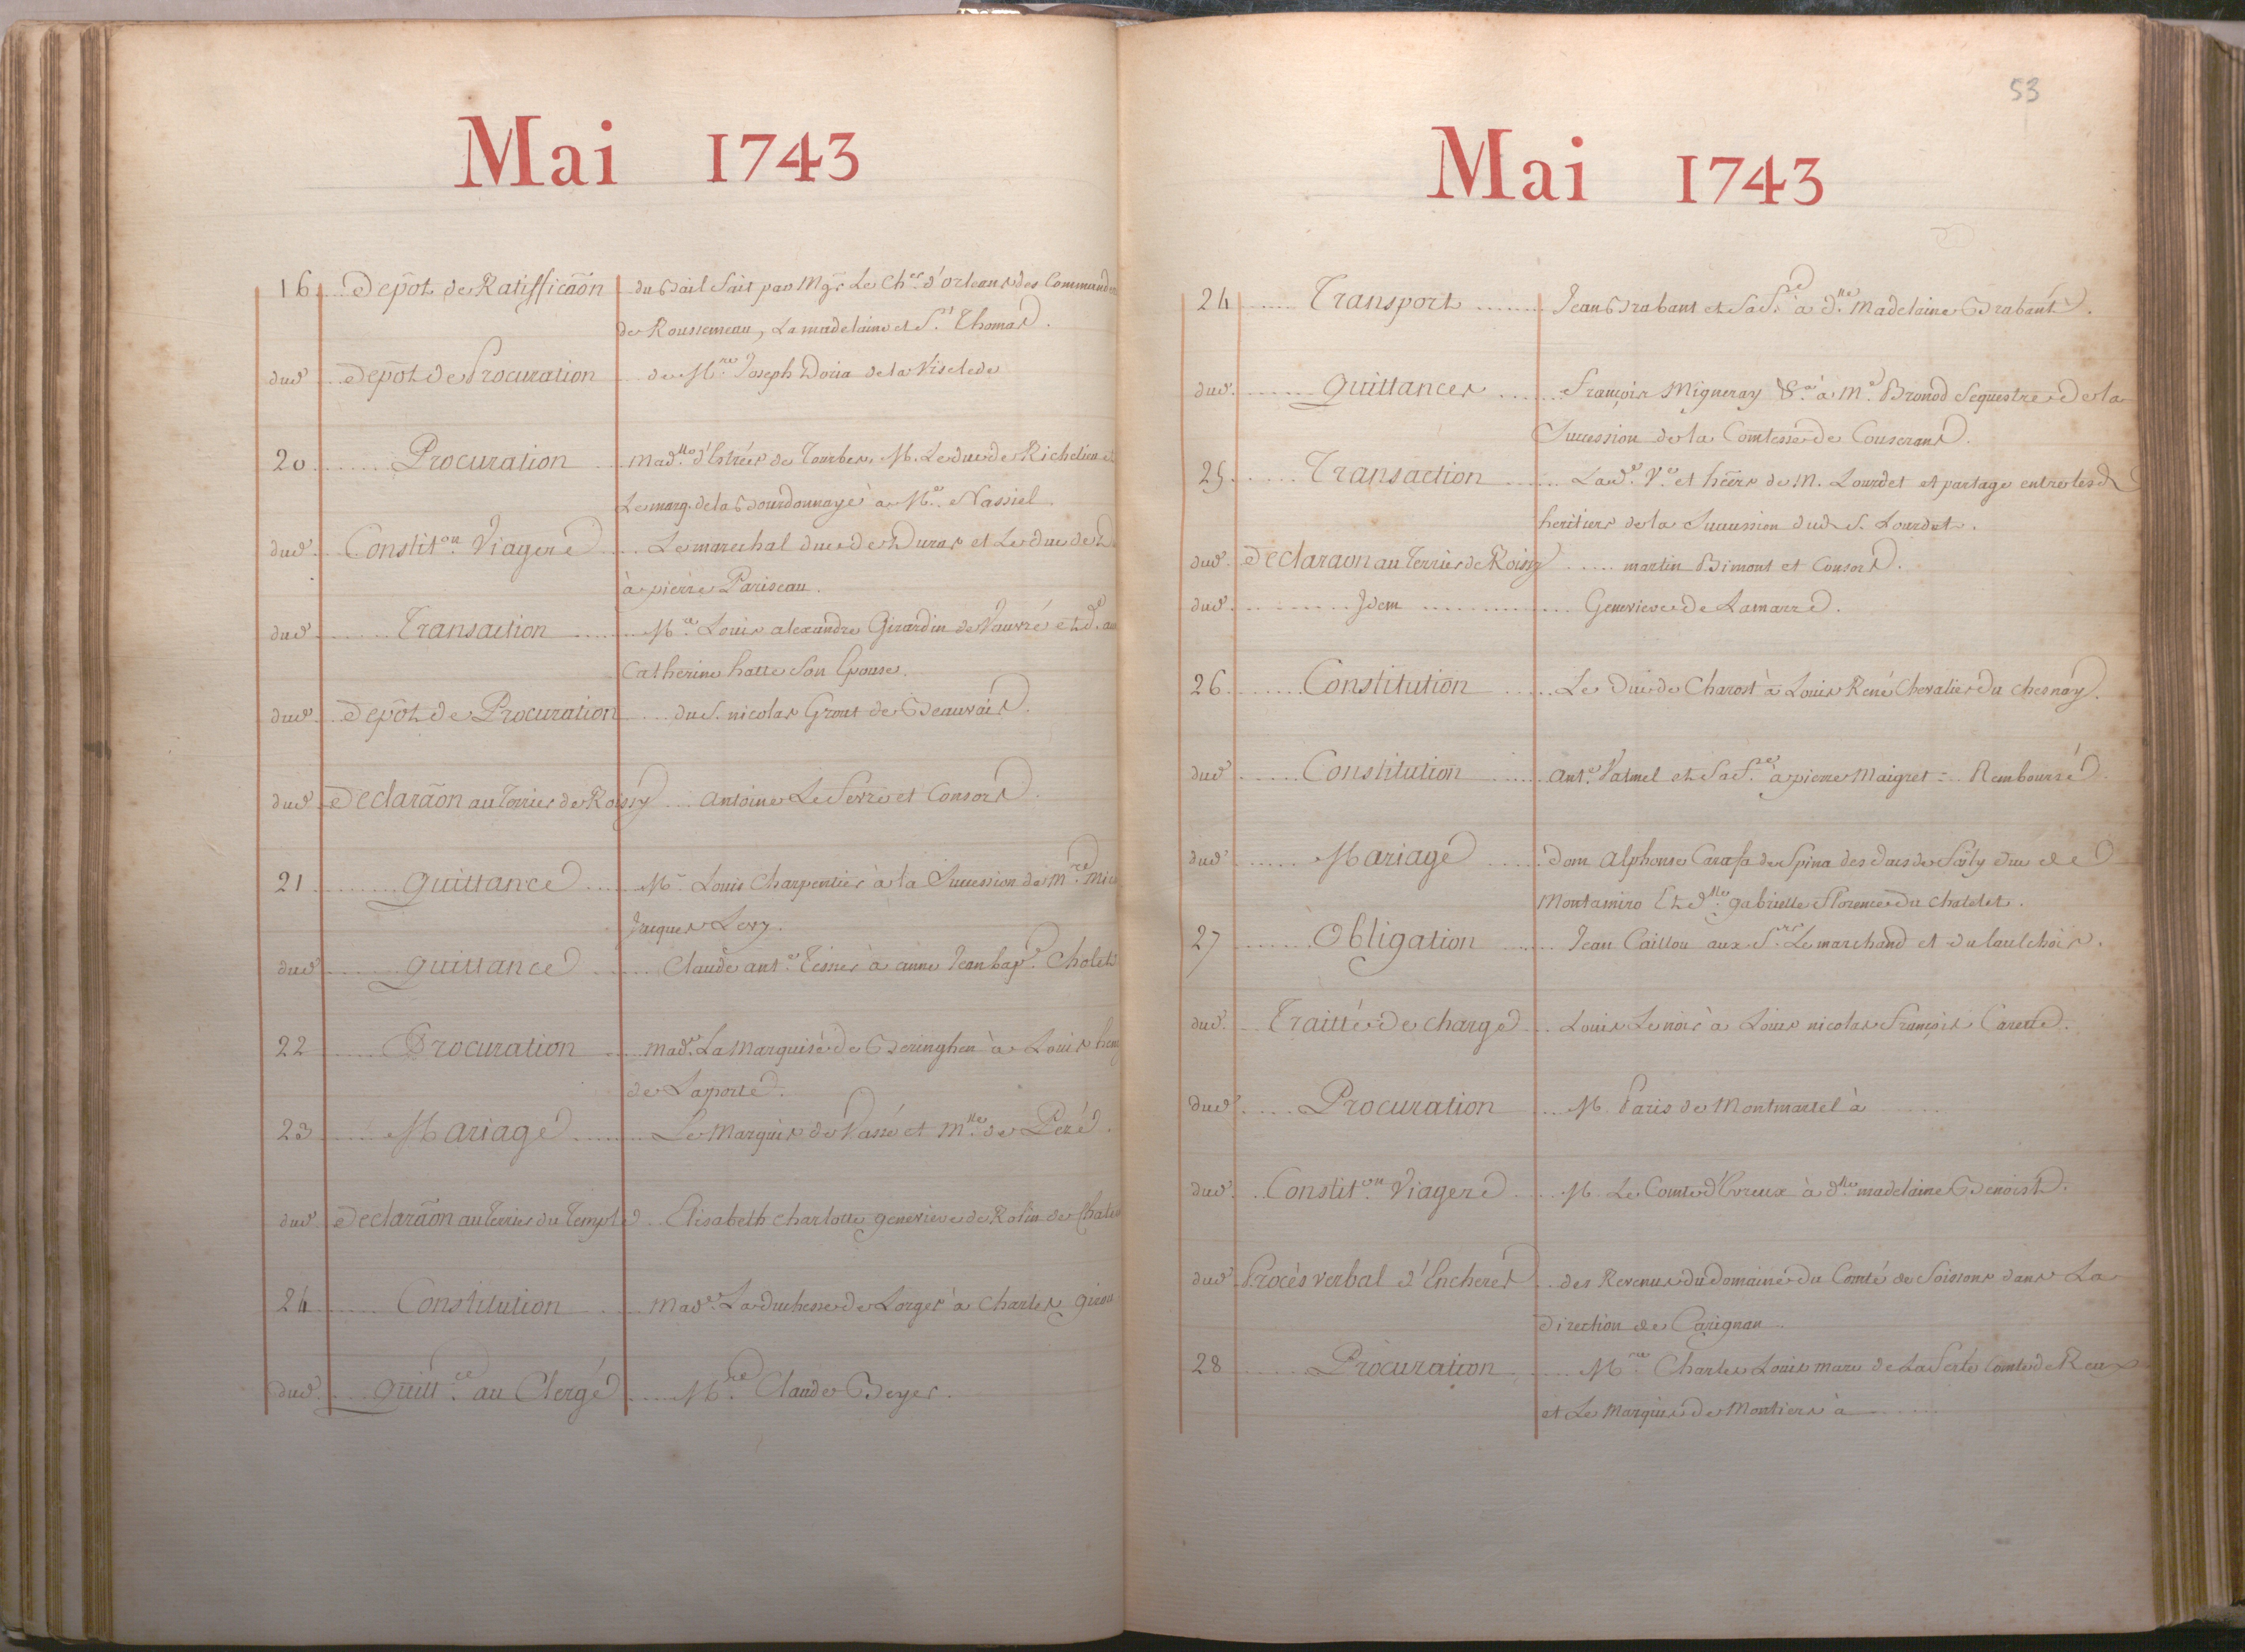 Mai 1743
16 Depôt de Ratifficãon du Bail fait par Mgr Le Ch.er d'Orleans des Command
de Rousseneau, La madelaine et S.t Thomas.
dud. Depôt de Procuration de M.re Joseph Doria de la Viselede
20 Procuration Mad.lle d'Estrées de Tourbes, M. Le duc de Richelieu et
Le marq. de la Bourdonnaye à M.e Nassiel
dud. Constit.on Viagere Le marechal duc de Duras et Le duc de D
à pierre Pariseau.
dud. Transaction M.re Louis alexandre Girardin de Vauvré et d.e
Catherine hatte Son Epouse.
dud. Depôt de Procuration du S. nicolas Grout de Beauvais.
dud. Declarãon au Terrier de Roissy Antoine Le Ferre et Consors.
21 Quittance M.e Louis Charpentier à la Succession de M.re
Jacques Levy.
dud. Quittance Claude ant.e Tesnier à anne Jean bap.e Cholet
22 Procuration mad.e La Marquise de Beringhen à Louis
de Laporte.
23 Mariage Le Marquis de Vassé et M.lle de Péré.
dud. Declarãon au Terrier du Temple Elisabeth Charlotte genevieve de Rolin de
24 Constitution Mad.e La duchesse de Lorges à Charles
dud. Quitt.ce au Clergé M.re Claude Beyer.
53
Mai 1743
24 Transport Jean Brabant et Sa f.e à d.lle Madelaine Brabant.
dud. Quittances François Migneray &.a à M.e Bronod Sequestre de la
Succession de la Comtesse de Couserans.
25 Transaction Lad.e V.e et hĕers de M. Lourdet et partage entre lesd.
heritiers de la Succession dud. S. Lourdet.
dud. Declaraon au Terrier de Roissy martin Bimont et Consors.
dud. Idem Genevieve de Lamarre.
26 Constitution Le Duc de Charost à Louis René Chevalier du Chesnay.
dud. Constitution Ant.e Valmel et Sa f.e à pierre Maigret = Remboursé.
dud. Mariage dom Alphonse Carafa de Spina des ducs de Forly duc de
Montamiro Et d.lle gabrielle Florence du Chatelet.
27 Obligation Jean Caillou aux S.rs Lemarchand et
dud. Traitté de charge Louis Lenoir à Louis nicolas François Carette.
dud. Procuration M. Paris de Montmartel à
dud. Constit.on Viagere M. Le Comte d'Evreux à d.lle madelaine Benoist.
dud. Procès verbal d'Encheres des Revenus du Domaine du Comté de Soissons dans La
direction de Carignan
28 Procuration M.re Charles Louis marc de La Ferté Comte de Reux
et Le Marquis de Montiers à